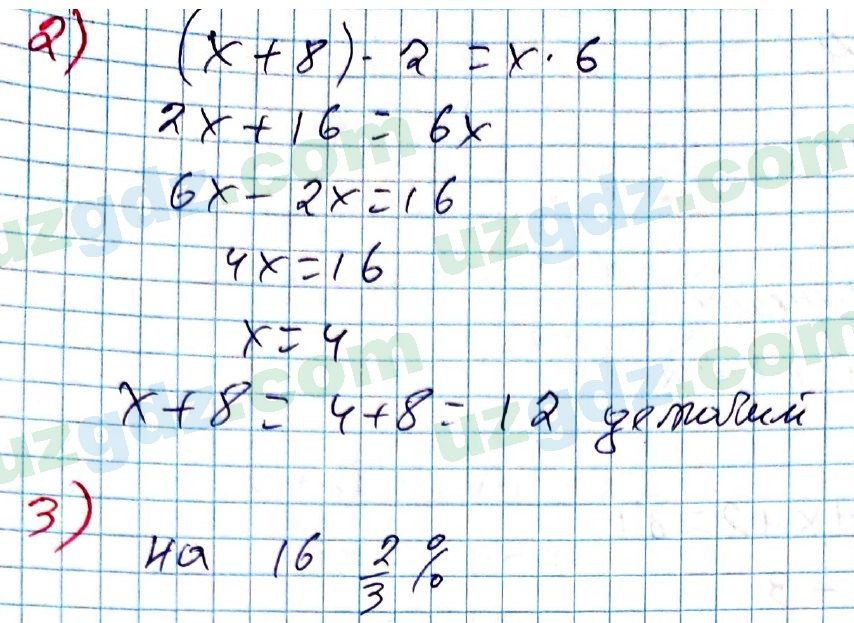 2) (x+8)·2=x·6
2x+16=6x
6x-2x=16
4x=16
x=4
x+8=4+8=12 деталей
3)
на 16 2/3 %
uzgdz.com
uzgdz.com
uzgdz.com
uzgdz.com